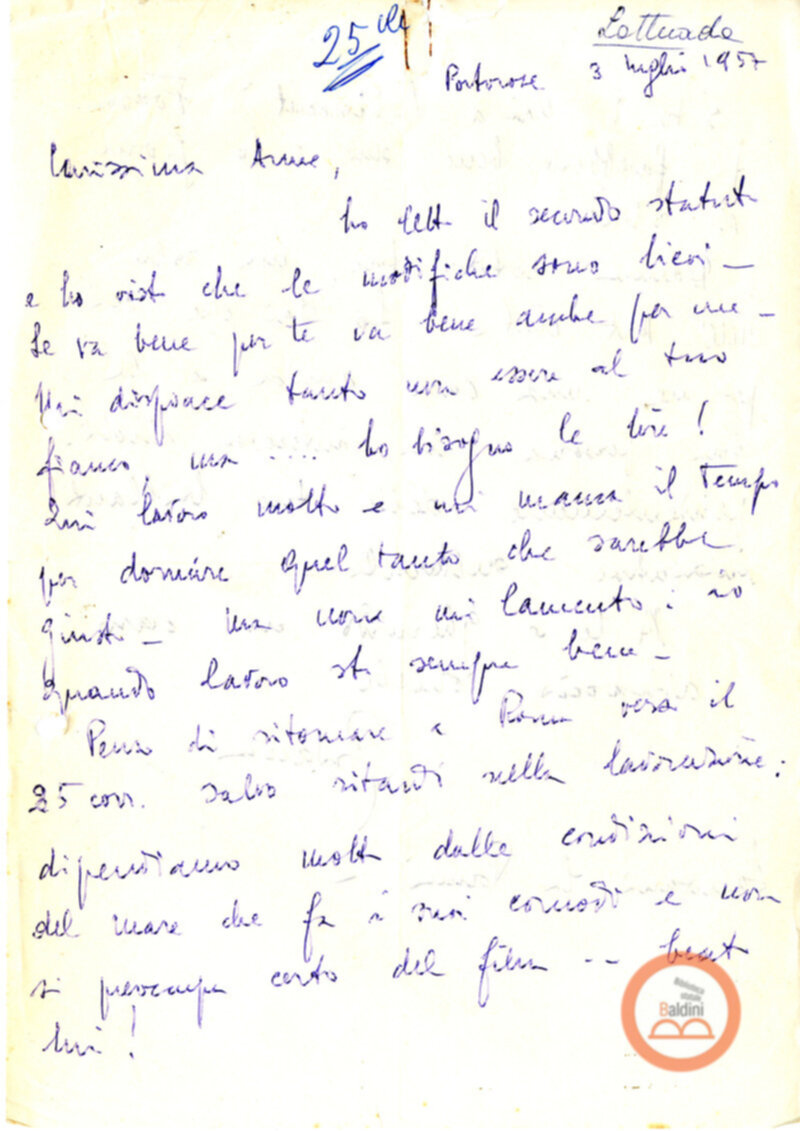 25
Lattuada
Portorose 3 luglio 1957
Carissima Anne,
ho letto il secondo statuto
e ho visto che le modifiche sono lievi –
Se va bene per te va bene anche per me –
Mi dispiace tanto non essere al tuo
fianco, ma .... ho bisogno le lire!
Qui lavoro molto e mi manca il tempo
per dormire quel tanto che sarebbe
giusto – ma non mi lamento: io
quando lavoro sto sempre bene –
Penso di ritornare a Roma verso il
25 corr. salvo ritardi nella lavorazione:
dipendiamo molto dalle condizioni
del mare che fa i suoi comodi e non
si preoccupa certo del film -- beato
lui!
Biblioteca
statale
Baldini